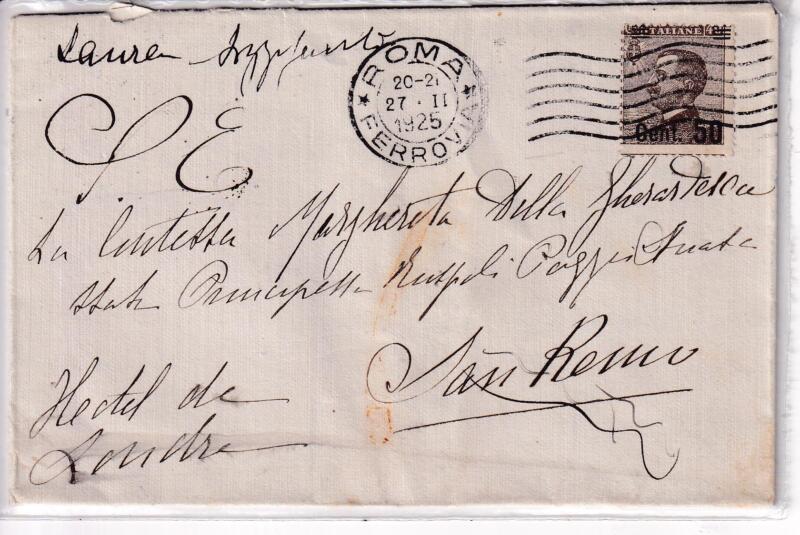 Laura
ROMA
20-21
27 · II
1925
FERROVIA
ITALIANE
Cent. 50
S. E
La Contessa Margherita Della Gherardesca
nata Principessa Ruspoli Poggio Suasa
San Remo
Hotel de
Londre